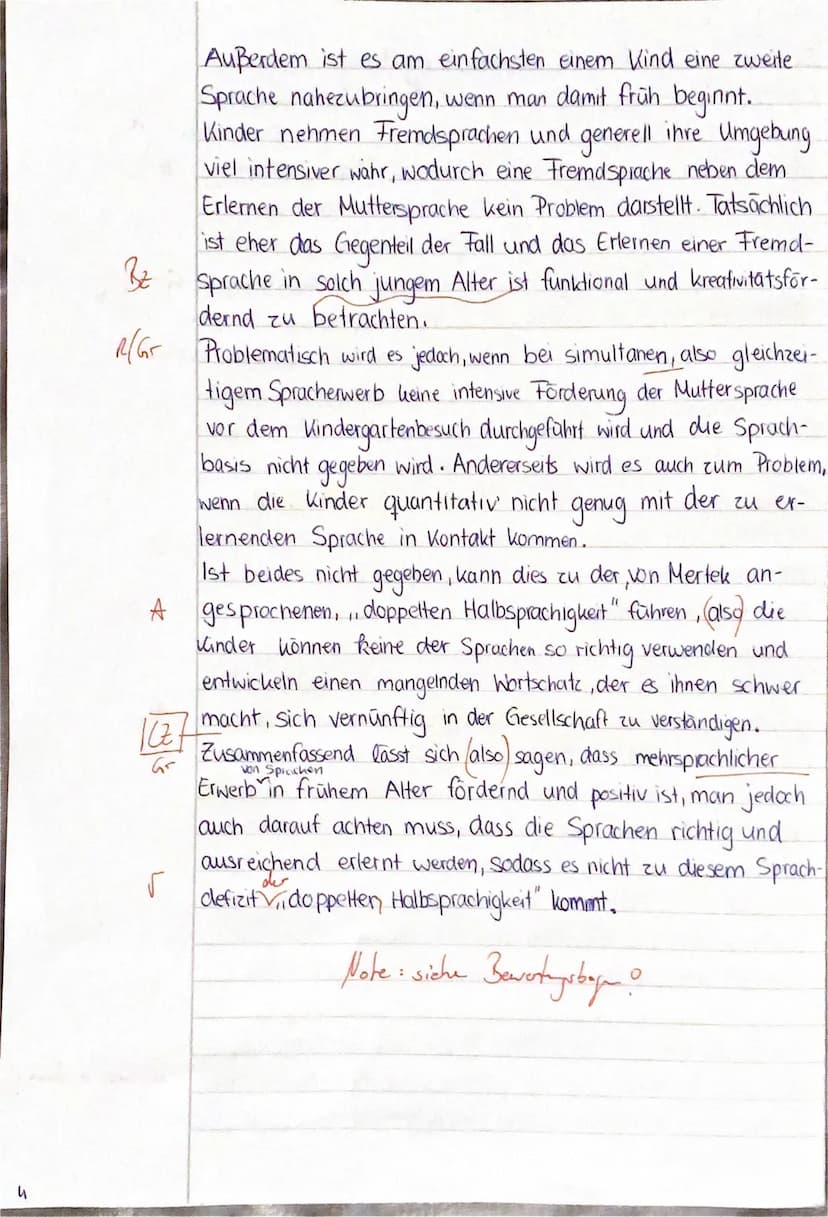 Außerdem ist es am einfachsten einem Kind eine zweite
Sprache nahezubringen, wenn man damit früh beginnt.
Kinder nehmen Fremdsprachen und generell ihre Umgebung
viel intensiver wahr, wodurch eine Fremdsprache neben dem
Erlernen der Muttersprache kein Problem darstellt. Tatsächlich
ist eher das Gegenteil der Fall und das Erlernen einer Fremd-
Bz sprache in solch jungem Alter ist funktional und kreativitätsför-
dernd zu betrachten.
R/Gr Problematisch wird es jedoch, wenn bei simultanen, also gleichzei-
tigem Spracherwerb keine intensive Förderung der Muttersprache
vor dem Kindergartenbesuch durchgeführt wird und die Sprach-
basis nicht gegeben wird. Andererseits wird es auch zum Problem,
wenn die Kinder quantitativ nicht genug mit der zu er-
lernenden Sprache in Kontakt kommen.
Ist beides nicht gegeben, kann dies zu der, von Mertek an-
A gesprochenen, „doppelten Halbsprachigkeit" führen, (also) die
Kinder können keine der Sprachen so richtig verwenden und
entwickeln einen mangelnden Wortschatz, der es ihnen schwer
macht, sich vernünftig in der Gesellschaft zu verständigen.
Zusammenfassend lässt sich (also) sagen, dass mehrsprachlicher
Gr von Sprachen
Erwerb in frühem Alter fördernd und positiv ist, man jedoch
auch darauf achten muss, dass die Sprachen richtig und
ausreichend erlernt werden, sodass es nicht zu diesem Sprach-
√ der
defizit „doppelten Halbsprachigkeit" kommt.
Note: siehe Bewertungsbogen!
4